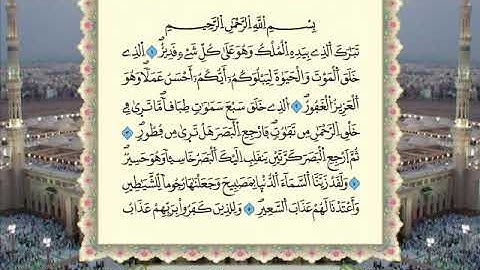 بِسْمِ اللَّهِ الرَّحْمَٰنِ الرَّحِيمِ
تَبَٰرَكَ الَّذِے بِيَدِهِ الْمُلْكُ وَهُوَ عَلَىٰ كُلِّ شَےْءٍ قَدِيرٌ ١ الَّذِے
خَلَقَ الْمَوْتَ وَالْحَيَوٰةَ لِيَبْلُوَكُمُۥٓ أَيُّكُمُۥٓ أَحْسَنُ عَمَلًا وَهُوَ
الْعَزِيزُ الْغَفُورُ ٢ الَّذِے خَلَقَ سَبْعَ سَمَٰوَٰتٍ طِبَاقًا مَّا تَرَىٰ فِے
خَلْقِ الرَّحْمَٰنِ مِن تَفَٰوُتٍ فَارْجِعِ الْبَصَرَ هَلْ تَرَىٰ مِن فُطُورٍ ٣
ثُمَّ ارْجِعِ الْبَصَرَ كَرَّتَيْنِ يَنقَلِبْ إِلَيْكَ الْبَصَرُ خَاسِئًا وَهُوَ حَسِيرٌ
٤ وَلَقَدْ زَيَّنَّا السَّمَآءَ الدُّنْيَا بِمَصَٰبِيحَ وَجَعَلْنَٰهَا رُجُومًا لِّلشَّيَٰطِينِ
وَأَعْتَدْنَا لَهُمْ عَذَابَ السَّعِيرِ ٥ وَلِلَّذِينَ كَفَرُوا۟ بِرَبِّهِمْ عَذَابُ